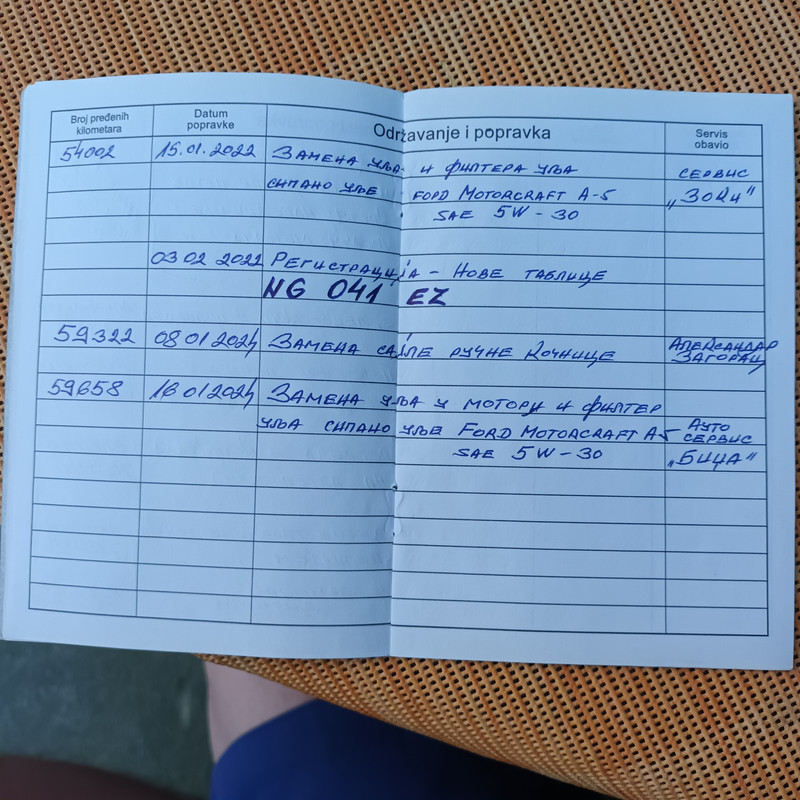 Broj pređenih kilometara Datum popravke Održavanje i popravka Servis obavio
54002 15.01.2022 ЗАМЕНА УЉА И ФИЛТЕРА УЉА СЕРВИС
СИПАНО УЉЕ FORD MOTORCRAFT A-5 „ЗОКИ"
SAE 5W-30
03 02 2022 РЕГИСТРАЦИЈА - НОВЕ ТАБЛИЦЕ
NG 041 EZ
59322 08 01 2024 ЗАМЕНА САЈЛЕ РУЧНЕ КОЧНИЦЕ АЛЕКСАНДАР ЗАГОРАЦ
59658 16 01 2024 ЗАМЕНА УЉА У МОТОРУ И ФИЛТЕР
УЉА СИПАНО УЉЕ FORD MOTORCRAFT A5 АУТО СЕРВИС
SAE 5W-30 „БИЦА"